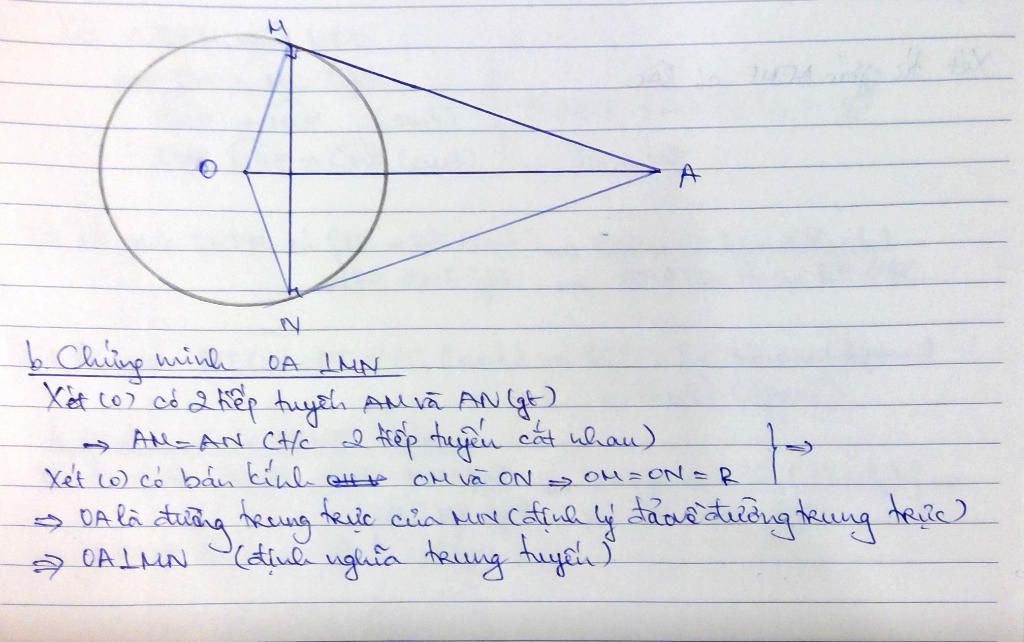 M
O
A
N
b. Chứng minh OA ⊥ MN
Xét (O) có 2 tiếp tuyến AM và AN (gt)
→ AM = AN (t/c 2 tiếp tuyến cắt nhau)
Xét (O) có bán kính OM và ON ⇒ OM = ON = R } ⇒
⇒ OA là đường trung trực của MN (định lý đảo về đường trung trực)
⇒ OA ⊥ MN (định nghĩa trung tuyến)